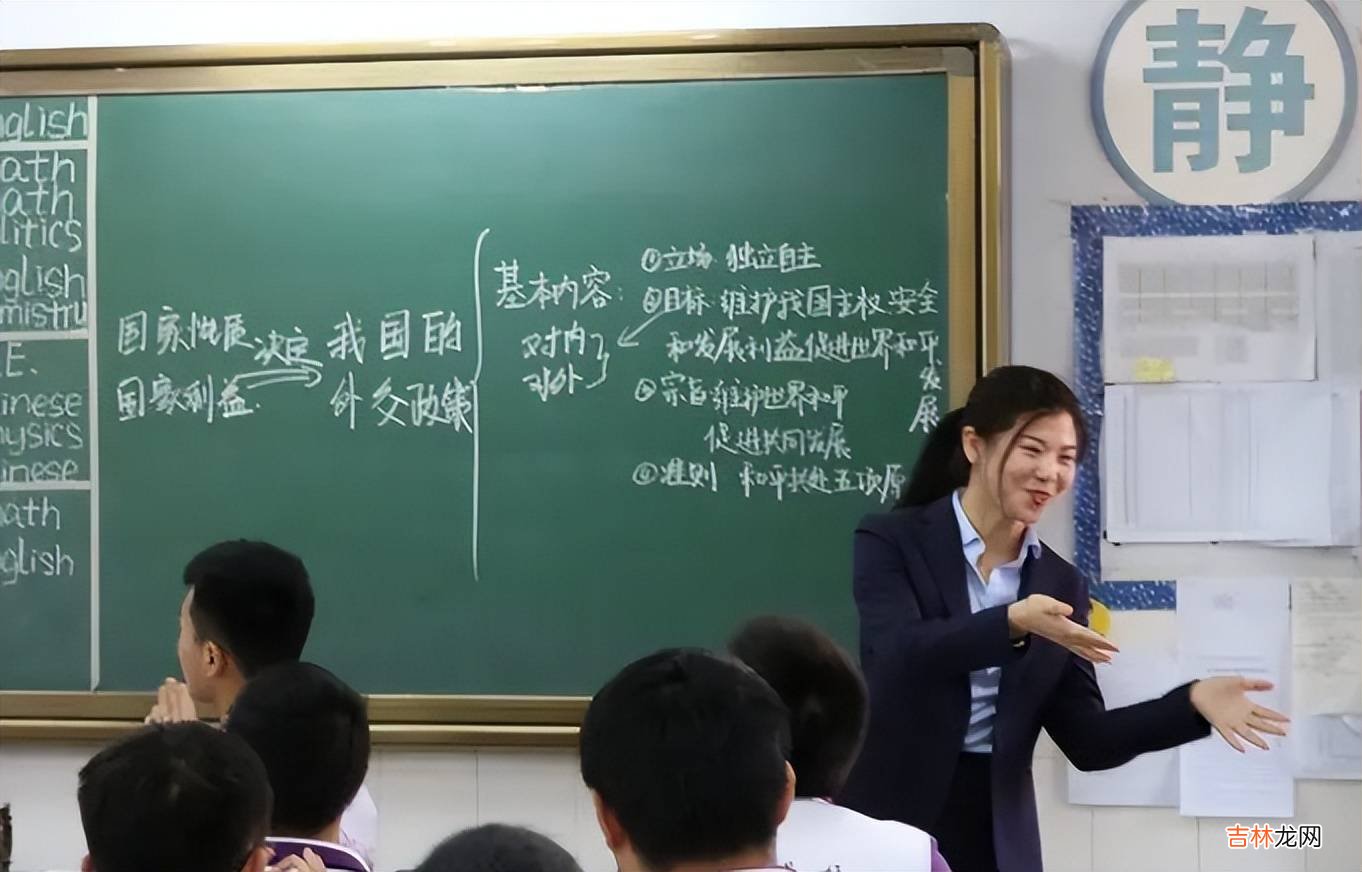 glish
ath
ath
litics
glish
mistry
E、
inese
ysics
inese
ath
glish
国家性质 决定 我国的
国家利益. 外交政策
基本内容:
对内
对外
①立场 独立自主
②目标 维护我国主权 安全
和发展利益 促进世界和平
发展
③宗旨 维护世界和平
促进共同发展
④准则 和平共处五项原
静
吉林龙网